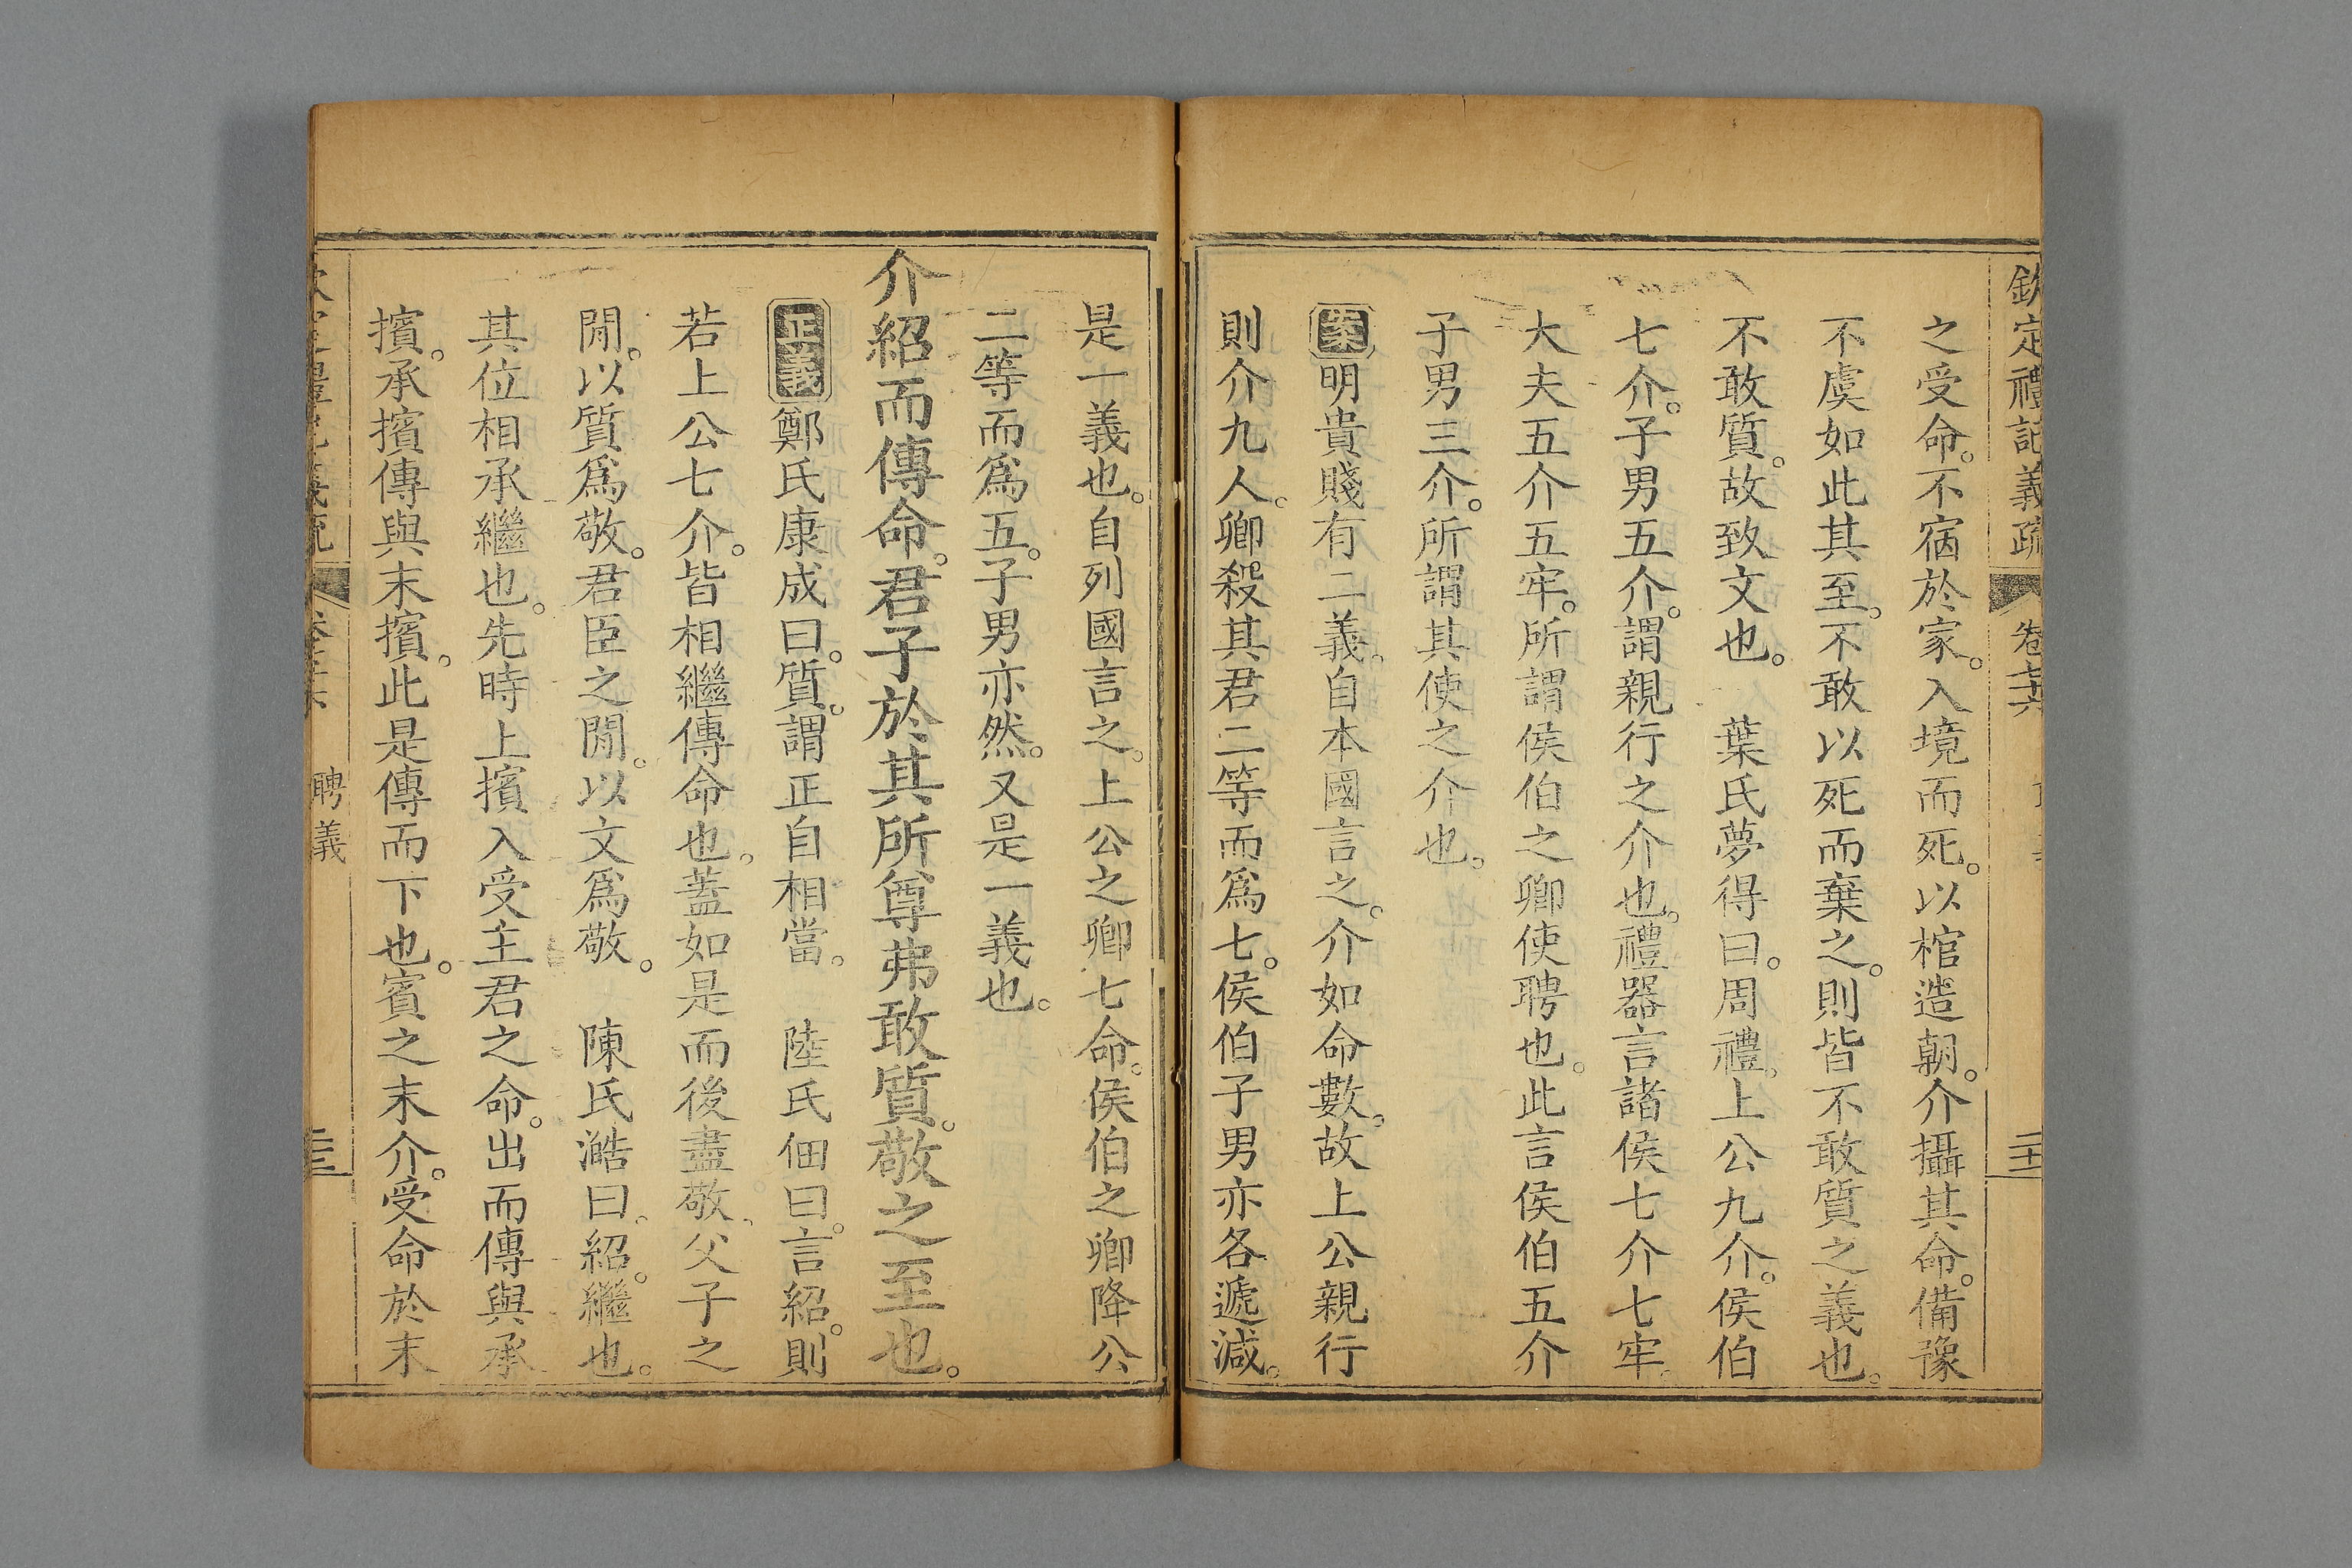 欽定禮記義疏
卷七十六
之受命。不宿於家。入境而死。以棺造朝。介攝其命。備豫
不虞如此其至。不敢以死而棄之。則皆不敢質之義也。
不敢質。故致文也。 葉氏夢得曰。周禮。上公九介。侯伯
七介。子男五介。謂親行之介也。禮器言諸侯七介七牢。
大夫五介五牢。所謂侯伯之卿使聘也。此言侯伯五介
子男三介。所謂其使之介也。
案明貴賤有二義。自本國言之。介如命數。故上公親行
則介九人。卿殺其君二等而爲七。侯伯子男亦各遞減。
是一義也。自列國言之。上公之卿七命。侯伯之卿降公
二等而爲五。子男亦然。又是一義也。
介紹而傳命。君子於其所尊弗敢質。敬之至也。
正義鄭氏康成曰。質。謂正自相當。 陸氏佃曰。言紹。則
若上公七介。皆相繼傳命也。蓋如是而後盡敬。父子之
閒。以質爲敬。君臣之閒。以文爲敬。 陳氏澔曰。紹。繼也。
其位相承繼也。先時上擯入受主君之命。出而傳與承
擯。承擯傳與末擯。此是傳而下也。賓之末介。受命於末
聘義